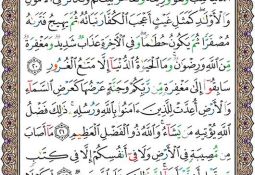 وَٱلْأَوْلَٰدِ كَمَثَلِ غَيْثٍ أَعْجَبَ ٱلْكُفَّارَ نَبَاتُهُۥ ثُمَّ يَهِيجُ فَتَرَىٰهُ
مُصْفَرًّا ثُمَّ يَكُونُ حُطَٰمًا ۖ وَفِى ٱلْءَاخِرَةِ عَذَابٌ شَدِيدٌ وَمَغْفِرَةٌ
مِّنَ ٱللَّهِ وَرِضْوَٰنٌ ۚ وَمَا ٱلْحَيَوٰةُ ٱلدُّنْيَآ إِلَّا مَتَٰعُ ٱلْغُرُورِ ٢٠
سَابِقُوٓا۟ إِلَىٰ مَغْفِرَةٍ مِّن رَّبِّكُمْ وَجَنَّةٍ عَرْضُهَا كَعَرْضِ ٱلسَّمَآءِ
وَٱلْأَرْضِ أُعِدَّتْ لِلَّذِينَ ءَامَنُوا۟ بِٱللَّهِ وَرُسُلِهِۦ ۚ ذَٰلِكَ فَضْلُ
ٱللَّهِ يُؤْتِيهِ مَن يَشَآءُ ۚ وَٱللَّهُ ذُو ٱلْفَضْلِ ٱلْعَظِيمِ ٢١ مَآ أَصَابَ
مِن مُّصِيبَةٍ فِى ٱلْأَرْضِ وَلَا فِىٓ أَنفُسِكُمْ إِلَّا فِى كِتَٰبٍ